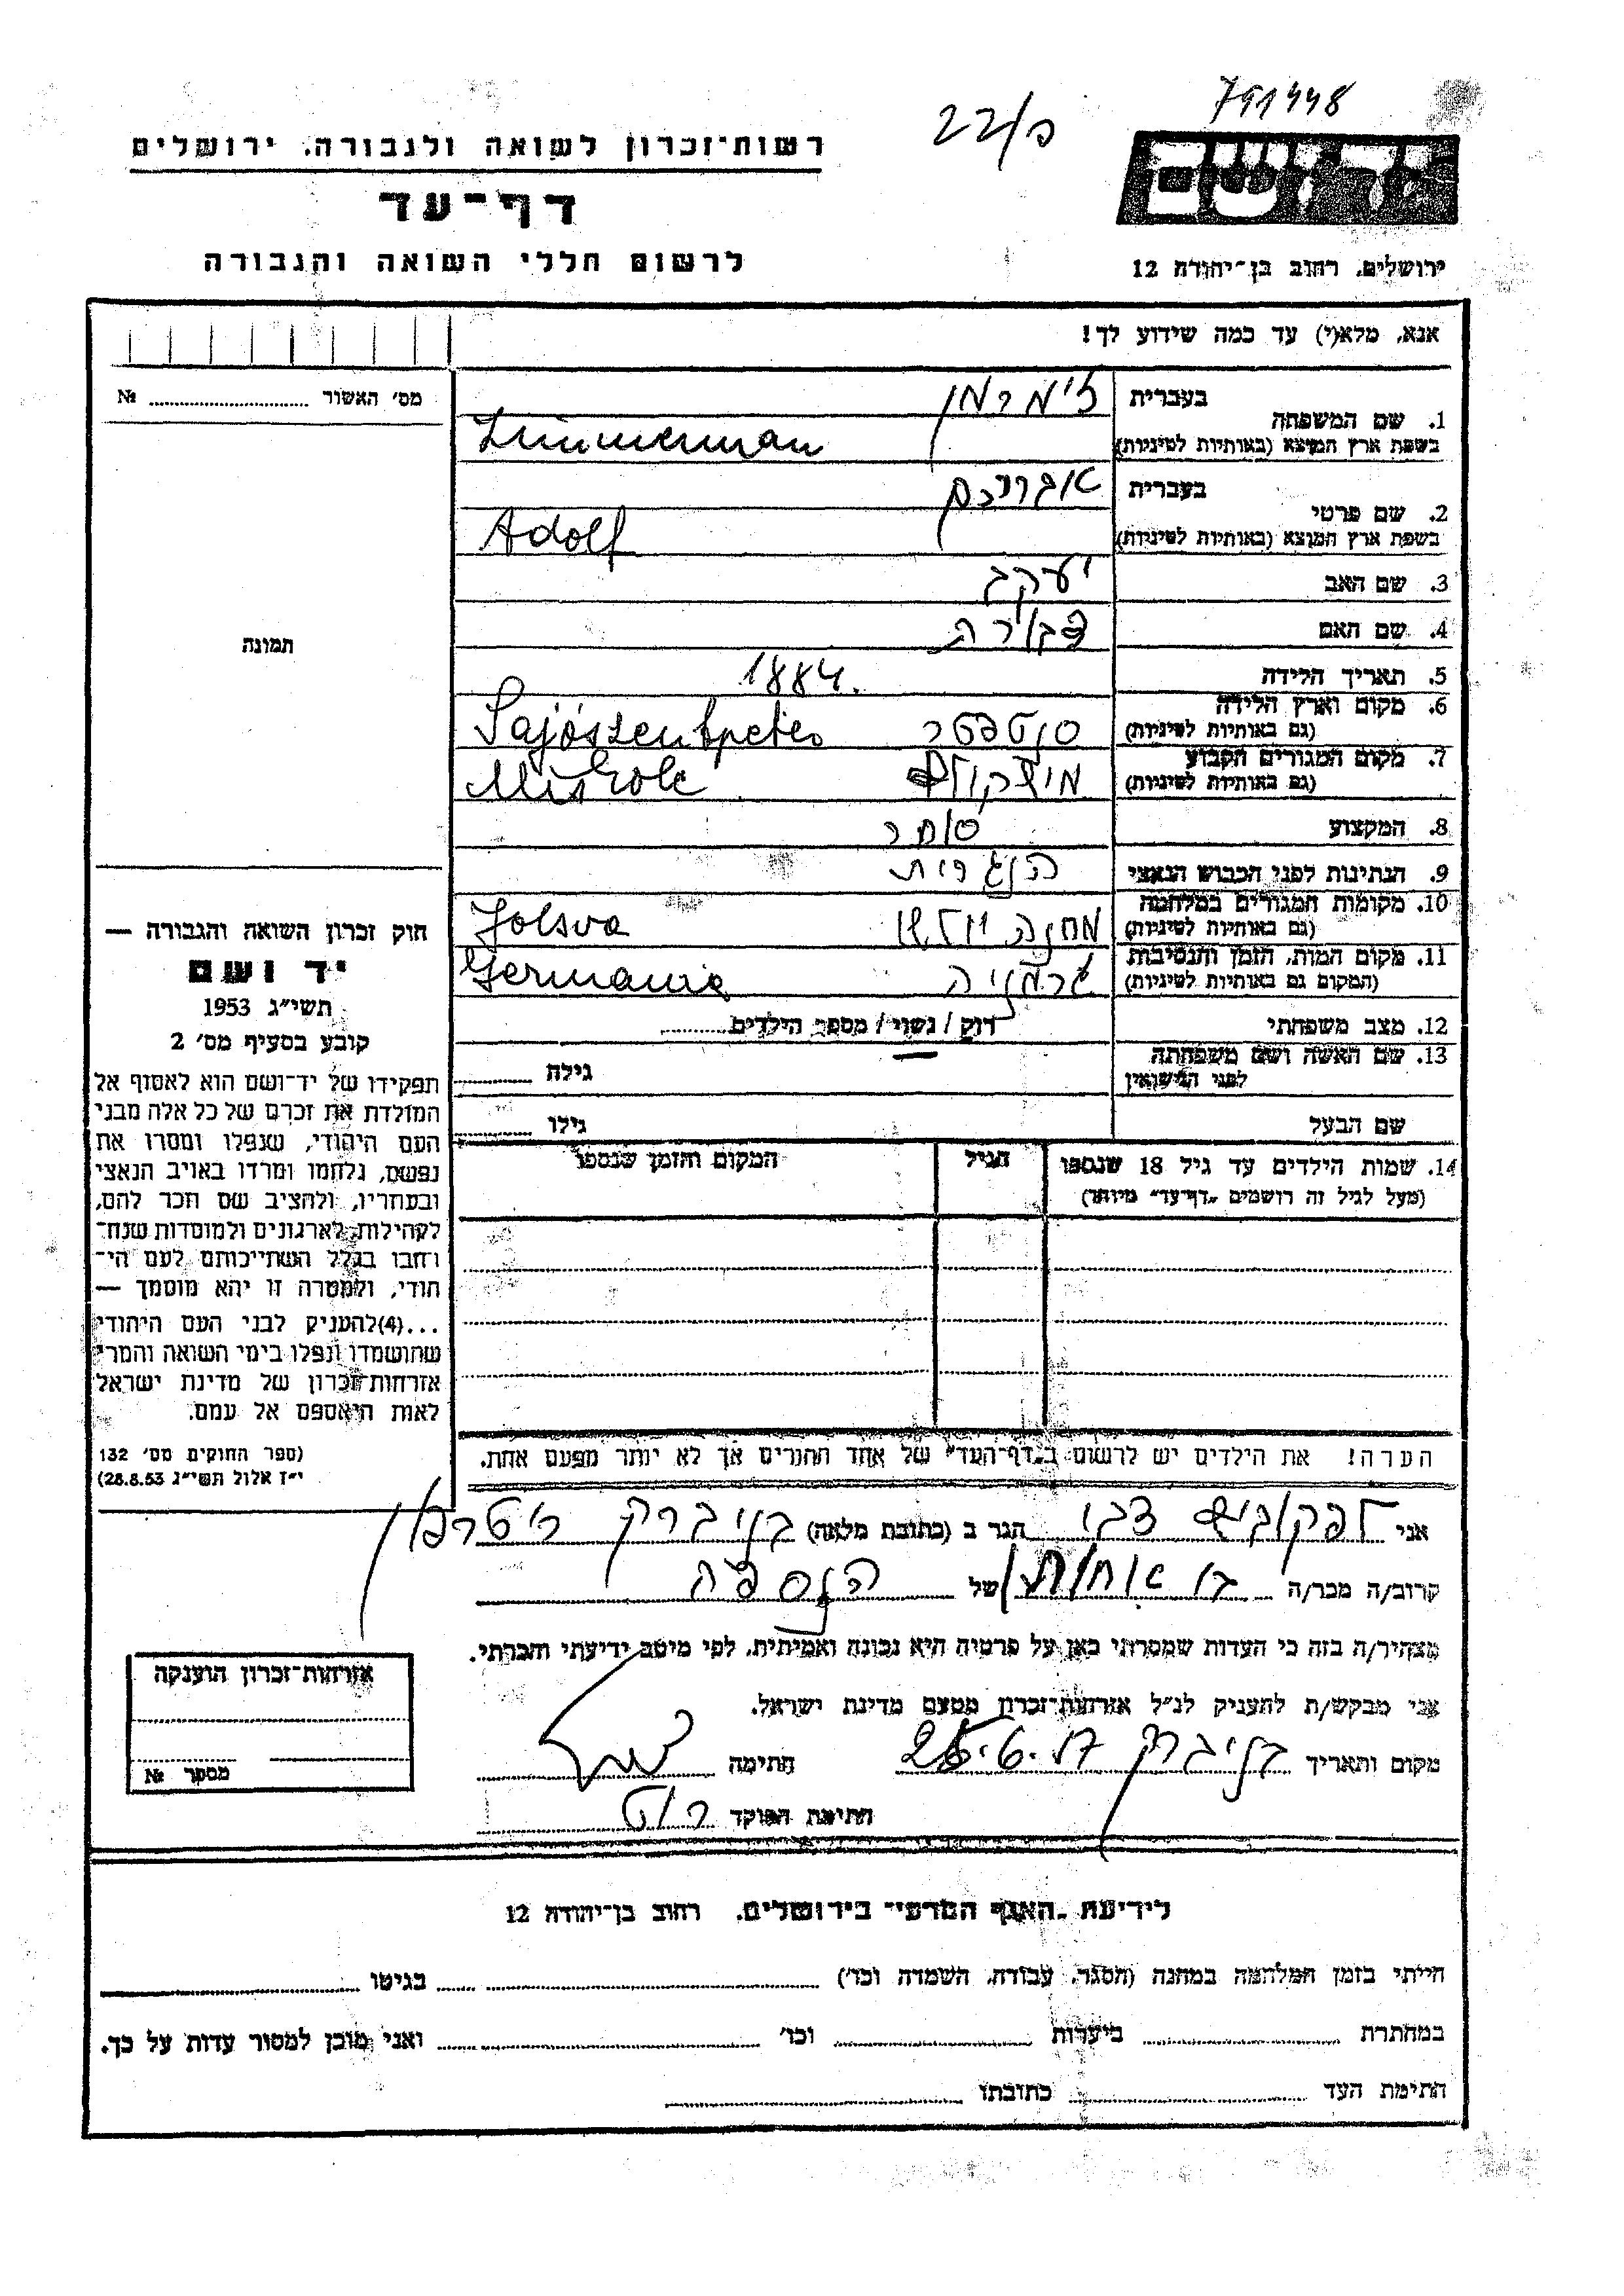 791448
22/ק
רשות־זכרון לשואה ולגבורה, ירושלים
דף־עד
לרשום חללי השואה והגבורה
יד ושם
ירושלים, רחוב בן־יהודה 12
אנא, מלא(י) עד כמה שידוע לך!
מס' האשור № 
תמונה
חוק זכרון השואה והגבורה —
יד ושם
תשי"ג 1953
קובע בסעיף מס' 2
תפקידו של יד־ושם הוא לאסוף אל
המולדת את זכרם של כל אלה מבני
העם היהודי, שנפלו ומסרו את
נפשם, נלחמו ומרדו באויב הנאצי
ובעוזריו, ולהציב שם וזכר להם,
לקהילות, לארגונים ולמוסדות שנח־
רבו בגלל השתייכותם לעם הי־
הודי, ולמטרה זו יהא מוסמך —
...(4)להעניק לבני העם היהודי
שהושמדו ונפלו בימי השואה והמרי
אזרחות־זכרון של מדינת ישראל
לאות היאספם אל עמם.
(ספר החוקים מס' 132
י"ז אלול תשי"ג 28.8.53)
1. שם המשפחה
בעברית זימרמן
בשפת ארץ המוצא (באותיות לטיניות) Zimmerman
2. שם פרטי
בעברית אברהם
בשפת ארץ המוצא (באותיות לטיניות) Adolf
3. שם האב יעקב
4. שם האם
5. תאריך הלידה 1884.
6. מקום וארץ הלידה
(גם באותיות לטיניות) סנטפטר Sajószentpeter
7. מקום המגורים הקבוע
(גם באותיות לטיניות) מישקולץ Miskolc
8. המקצוע סוחר
9. הנתינות לפני הכבוש הנאצי הונגרית
10. מקומות המגורים במלחמה
(גם באותיות לטיניות) מחנה Jolsva
11. מקום המות, הזמן והנסיבות
(המקום גם באותיות לטיניות) גרמניה Germania
12. מצב משפחתי רווק / נשוי / מספר הילדים
13. שם האשה ושם משפחתה
לפני הנישואין גילה
שם הבעל גילו
14. שמות הילדים עד גיל 18 שנספו הגיל המקום והזמן שנספו
(מעל לגיל זה רושמים "דף־עד" מיוחד)
הערה! את הילדים יש לרשום ב"דף־העד" של אחד ההורים אך לא יותר מפעם אחת.
אני לפקוביץ צבי הגר ב (כתובת מלאה) בני ברק
קרוב/ה מכר/ה בן אחות של הנספה
מצהיר/ה בזה כי העדות שמסרתי כאן על פרטיה היא נכונה ואמיתית, לפי מיטב ידיעתי והכרתי.
אני מבקש/ת להעניק לנ"ל אזרחות־זכרון מטעם מדינת ישראל.
מקום ותאריך בני ברק חתימה
חתימת הפוקד
אזרחות־זכרון הוענקה
מספר №
לידיעת "האגף המדעי" בירושלים, רחוב בן־יהודה 12
הייתי בזמן המלחמה במחנה (הסגר, עבודה, השמדה וכו') בגיטו
במחתרת ביערות וכו' ואני מוכן למסור עדות על כך.
חתימת העד כתובתו